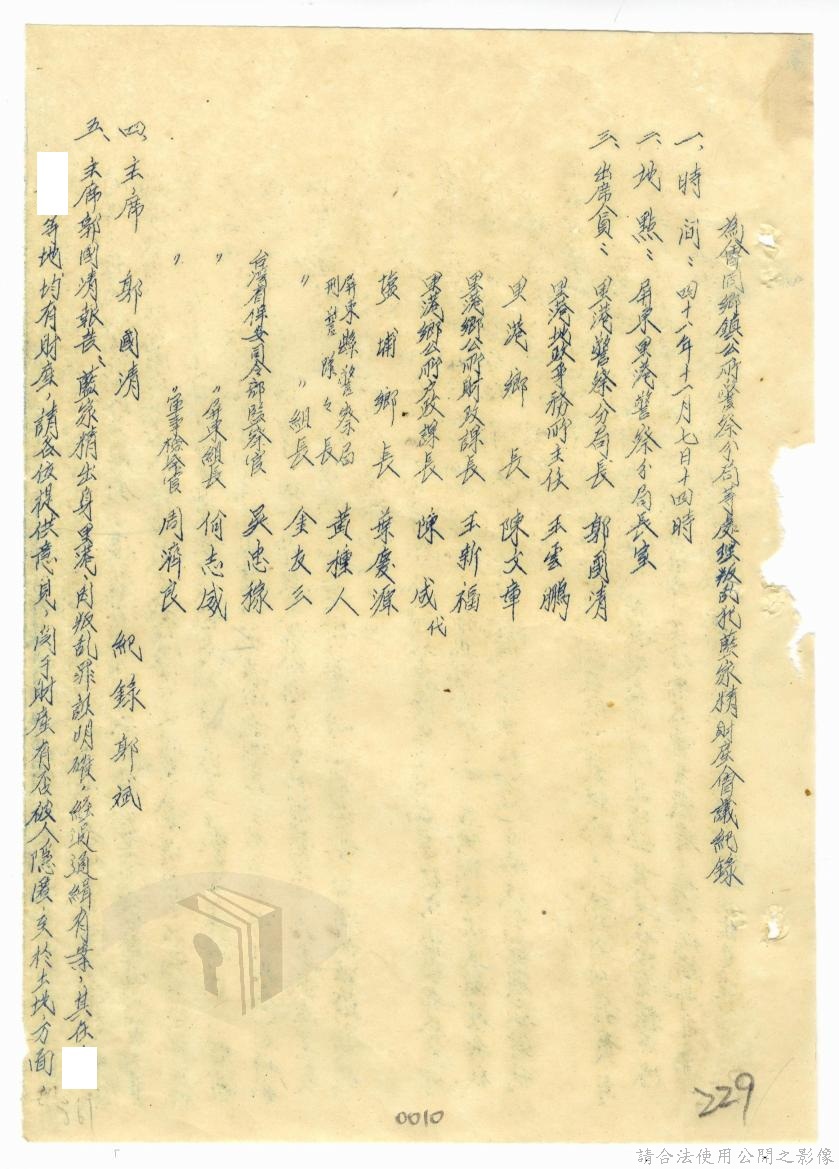 為會同鄉鎮公所警察分局等處理叛亂犯藍家精財產會議紀錄
一、時間：四十八年十一月七日十四時
二、地點：屏東里港警察分局長室
三、出席人員：里港警察分局長 郭國清
里港地政事務所主任 王雲鵬
里港鄉長 陳文章
里港鄉公所財政課長 王新福
里港鄉公所民政課長 陳成代
鹽埔鄉長 葉慶源
屏東縣警察局刑警隊々長 黃種人
〃 〃組長 金友三
台灣省保安司令部監察官 吳忠稼
〃 〃屏東組長 何志威
〃 〃軍事檢察官 周濟良
四、主席 郭國清 紀錄 郭斌
五、主席郭國清報告：藍家精出身里港，因叛乱罪証明確，經過通緝有案，其在
等地均有財產，請各位提供意見，関于財產有否被人隱匿，至於土地方面
0010
229
請合法使用公開之影像